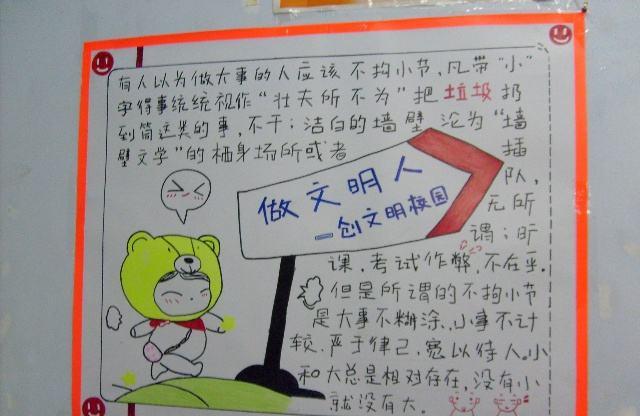 有人以为做大事的人应该不拘小节,凡带“小”
字得事统统视作“壮夫所不为”把垃圾扔
到简这类的事,不干;洁白的墙壁沦为“墙
壁文学”的栖身场所或者
插
队,
无所
谓;旷
课,考试作弊,不在乎.
但是所谓的不拘小节
是大事不糊涂.小事不计
较.严于律己,宽以待人.小
和大总是相对存在,没有小
就没有大.
做文明人
—创文明校园